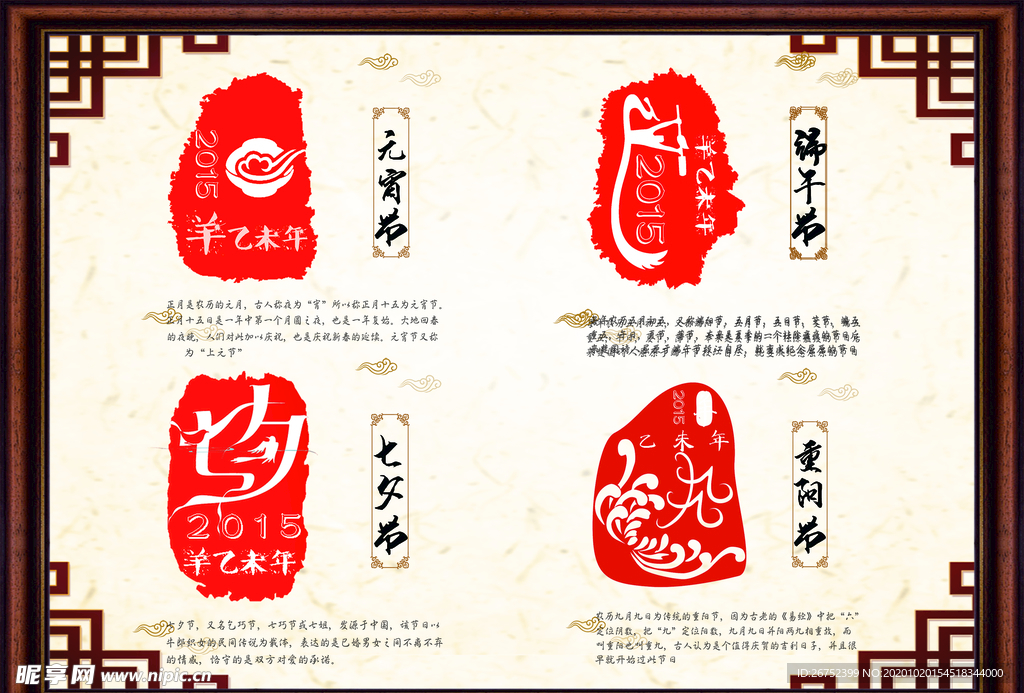 2015
羊乙未年
元宵节
正月是农历的元月，古人称夜为“宵”所以称正月十五为元宵节。
正月十五日是一年中第一个月圆之夜，也是一年复始，大地回春
的夜晚，人们对此加以庆祝，也是庆祝新春的延续。元宵节又称
为“上元节”
2015
羊乙未年
端午节
七夕
2015
羊乙未年
七夕节
七夕节，又名乞巧节，七巧节或七姐，发源于中国，该节日以
牛郎织女的民间传说为载体，表达的是已婚男女之间不离不弃
的情感，恪守的是双方对爱的承诺。
2015
乙未年
九九
重阳节
农历九月九日为传统的重阳节，因为古老的《易经》中把“六”
定位阴数，把“九”定位阳数，九月九日并阳两九相重故，而
叫重阳也叫重九，古人认为是个值得庆贺的吉利日子，并且很
早就开始过此节日
昵享网 www.nipic.cn
ID:26752399 NO:20201020154518344000